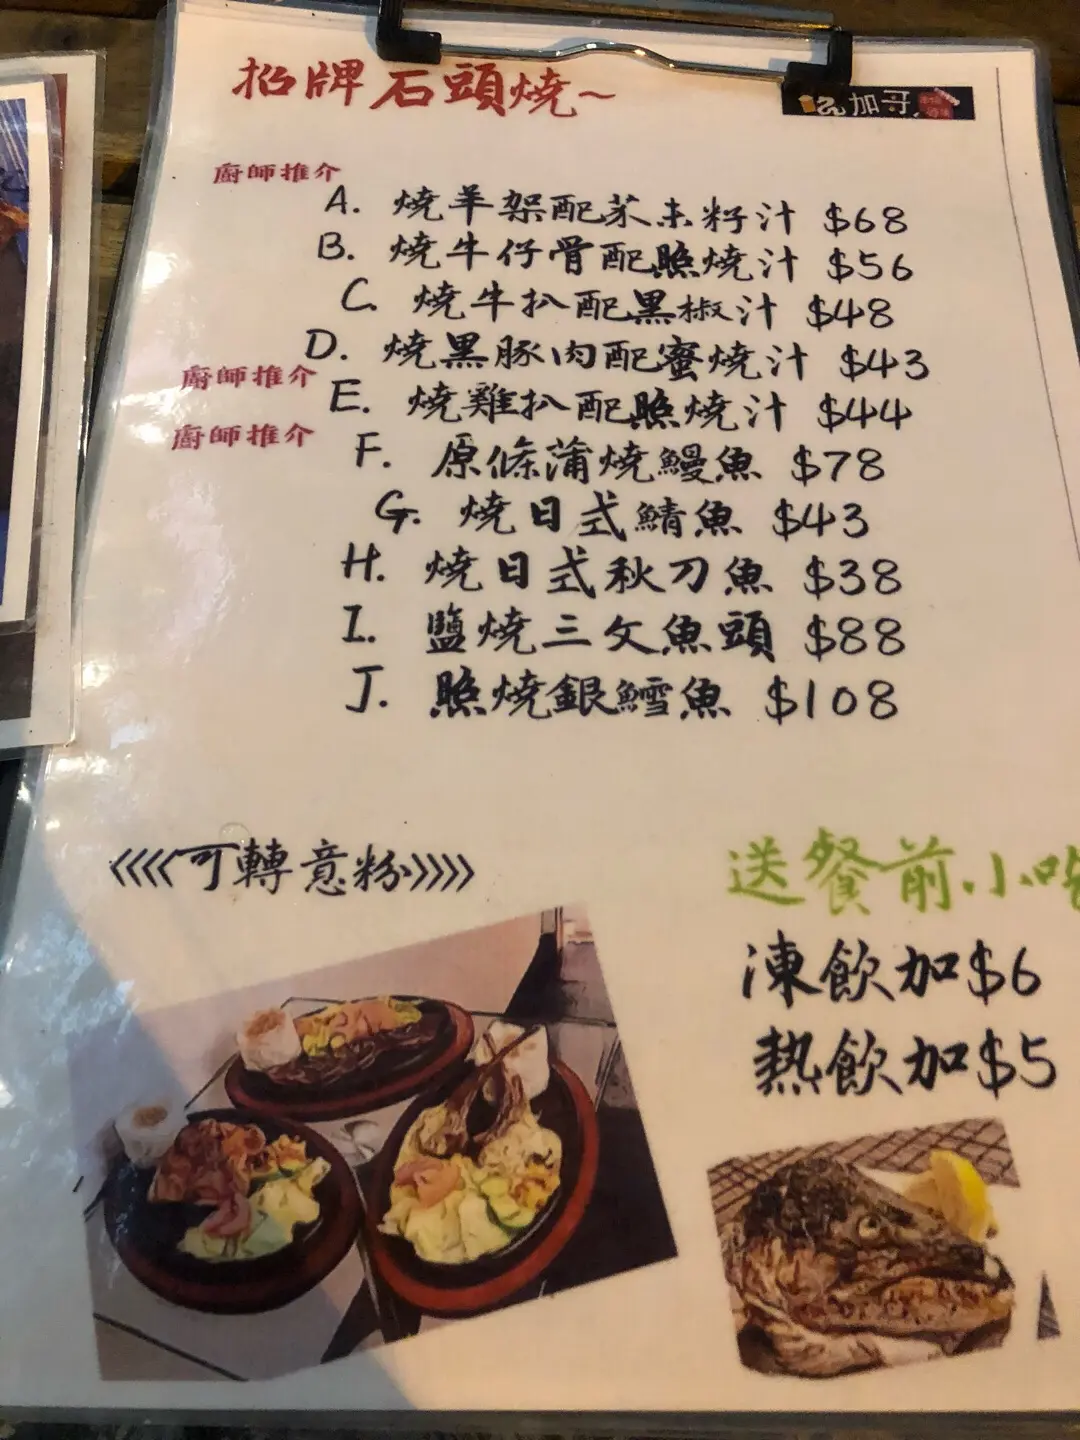 招牌石頭燒~
加哥
廚師推介
A. 燒羊架配芥末籽汁 $68
B. 燒牛仔骨配照燒汁 $56
C. 燒牛扒配黑椒汁 $48
D. 燒黑豚肉配蜜燒汁 $43
廚師推介
E. 燒雞扒配照燒汁 $44
廚師推介
F. 原條蒲燒鰻魚 $78
G. 燒日式鯖魚 $43
H. 燒日式秋刀魚 $38
I. 鹽燒三文魚頭 $88
J. 照燒銀鱈魚 $108
<<<<可轉意粉>>>>
送餐前小吃
凍飲加$6
熱飲加$5